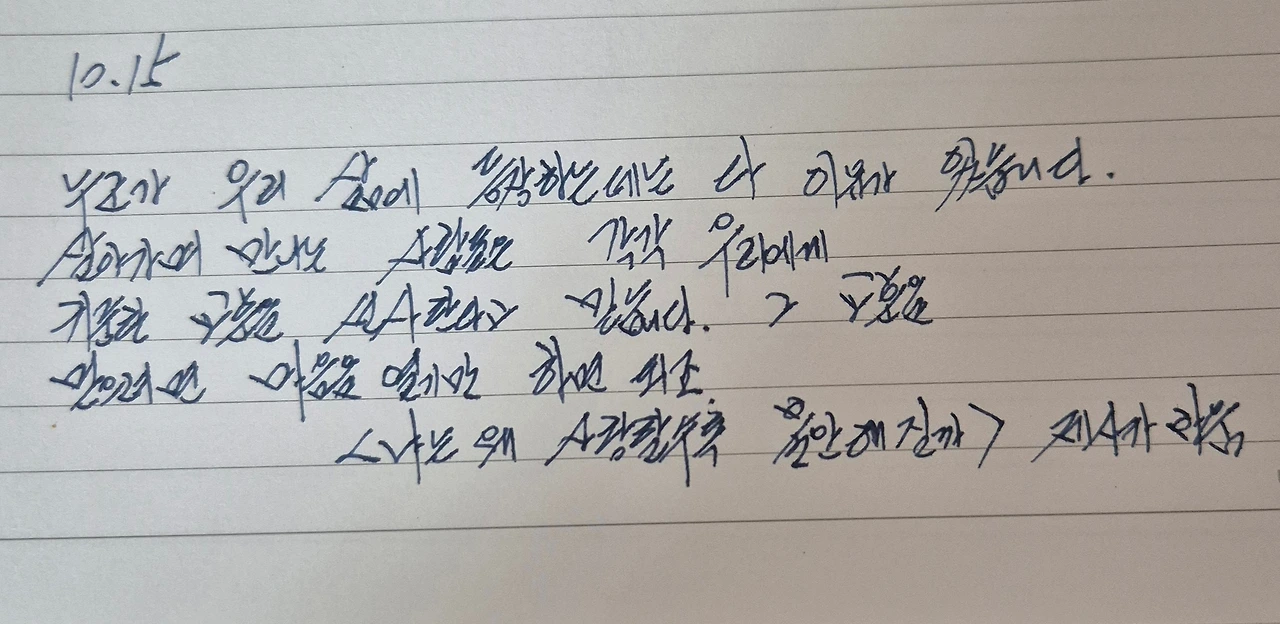 10.15
누군가 우리 삶에 등장하는데는 다 이유가 있습니다.
살아가며 만나는 사람들은 각각 우리에게
귀중한 교훈을 선사한다고 믿습니다. 그 교훈을
받으려면 마음을 열기만 하면 되죠.
<나는 왜 사랑할수록 불안해질까> 제시카 바움